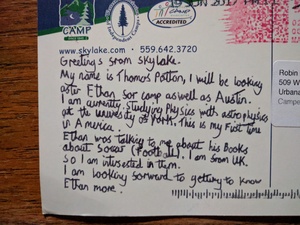 CAMP
ACCREDITED
19 JUN 2017
www.skylake.com • 559.642.3720
Greetings from skylake.
My name is Thomas Patton, I will be looking
after Ethan for camp as well as Austin.
I am currently studying Physics with astrophysics
at the University of York. This is my first time
in America.
Ethan was talking to me about his Books
about Soccer (football). I am from UK.
so I am interested in them.
I am looking forward to getting to know
Ethan more.
Robin
509 W
Urbana